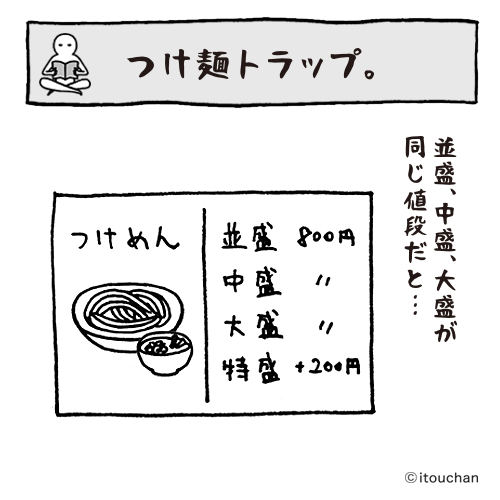 つけ麺トラップ。
並盛、中盛、大盛が
同じ値段だと…
つけめん
並盛 800円
中盛 〃
大盛 〃
特盛 +200円
©itouchan